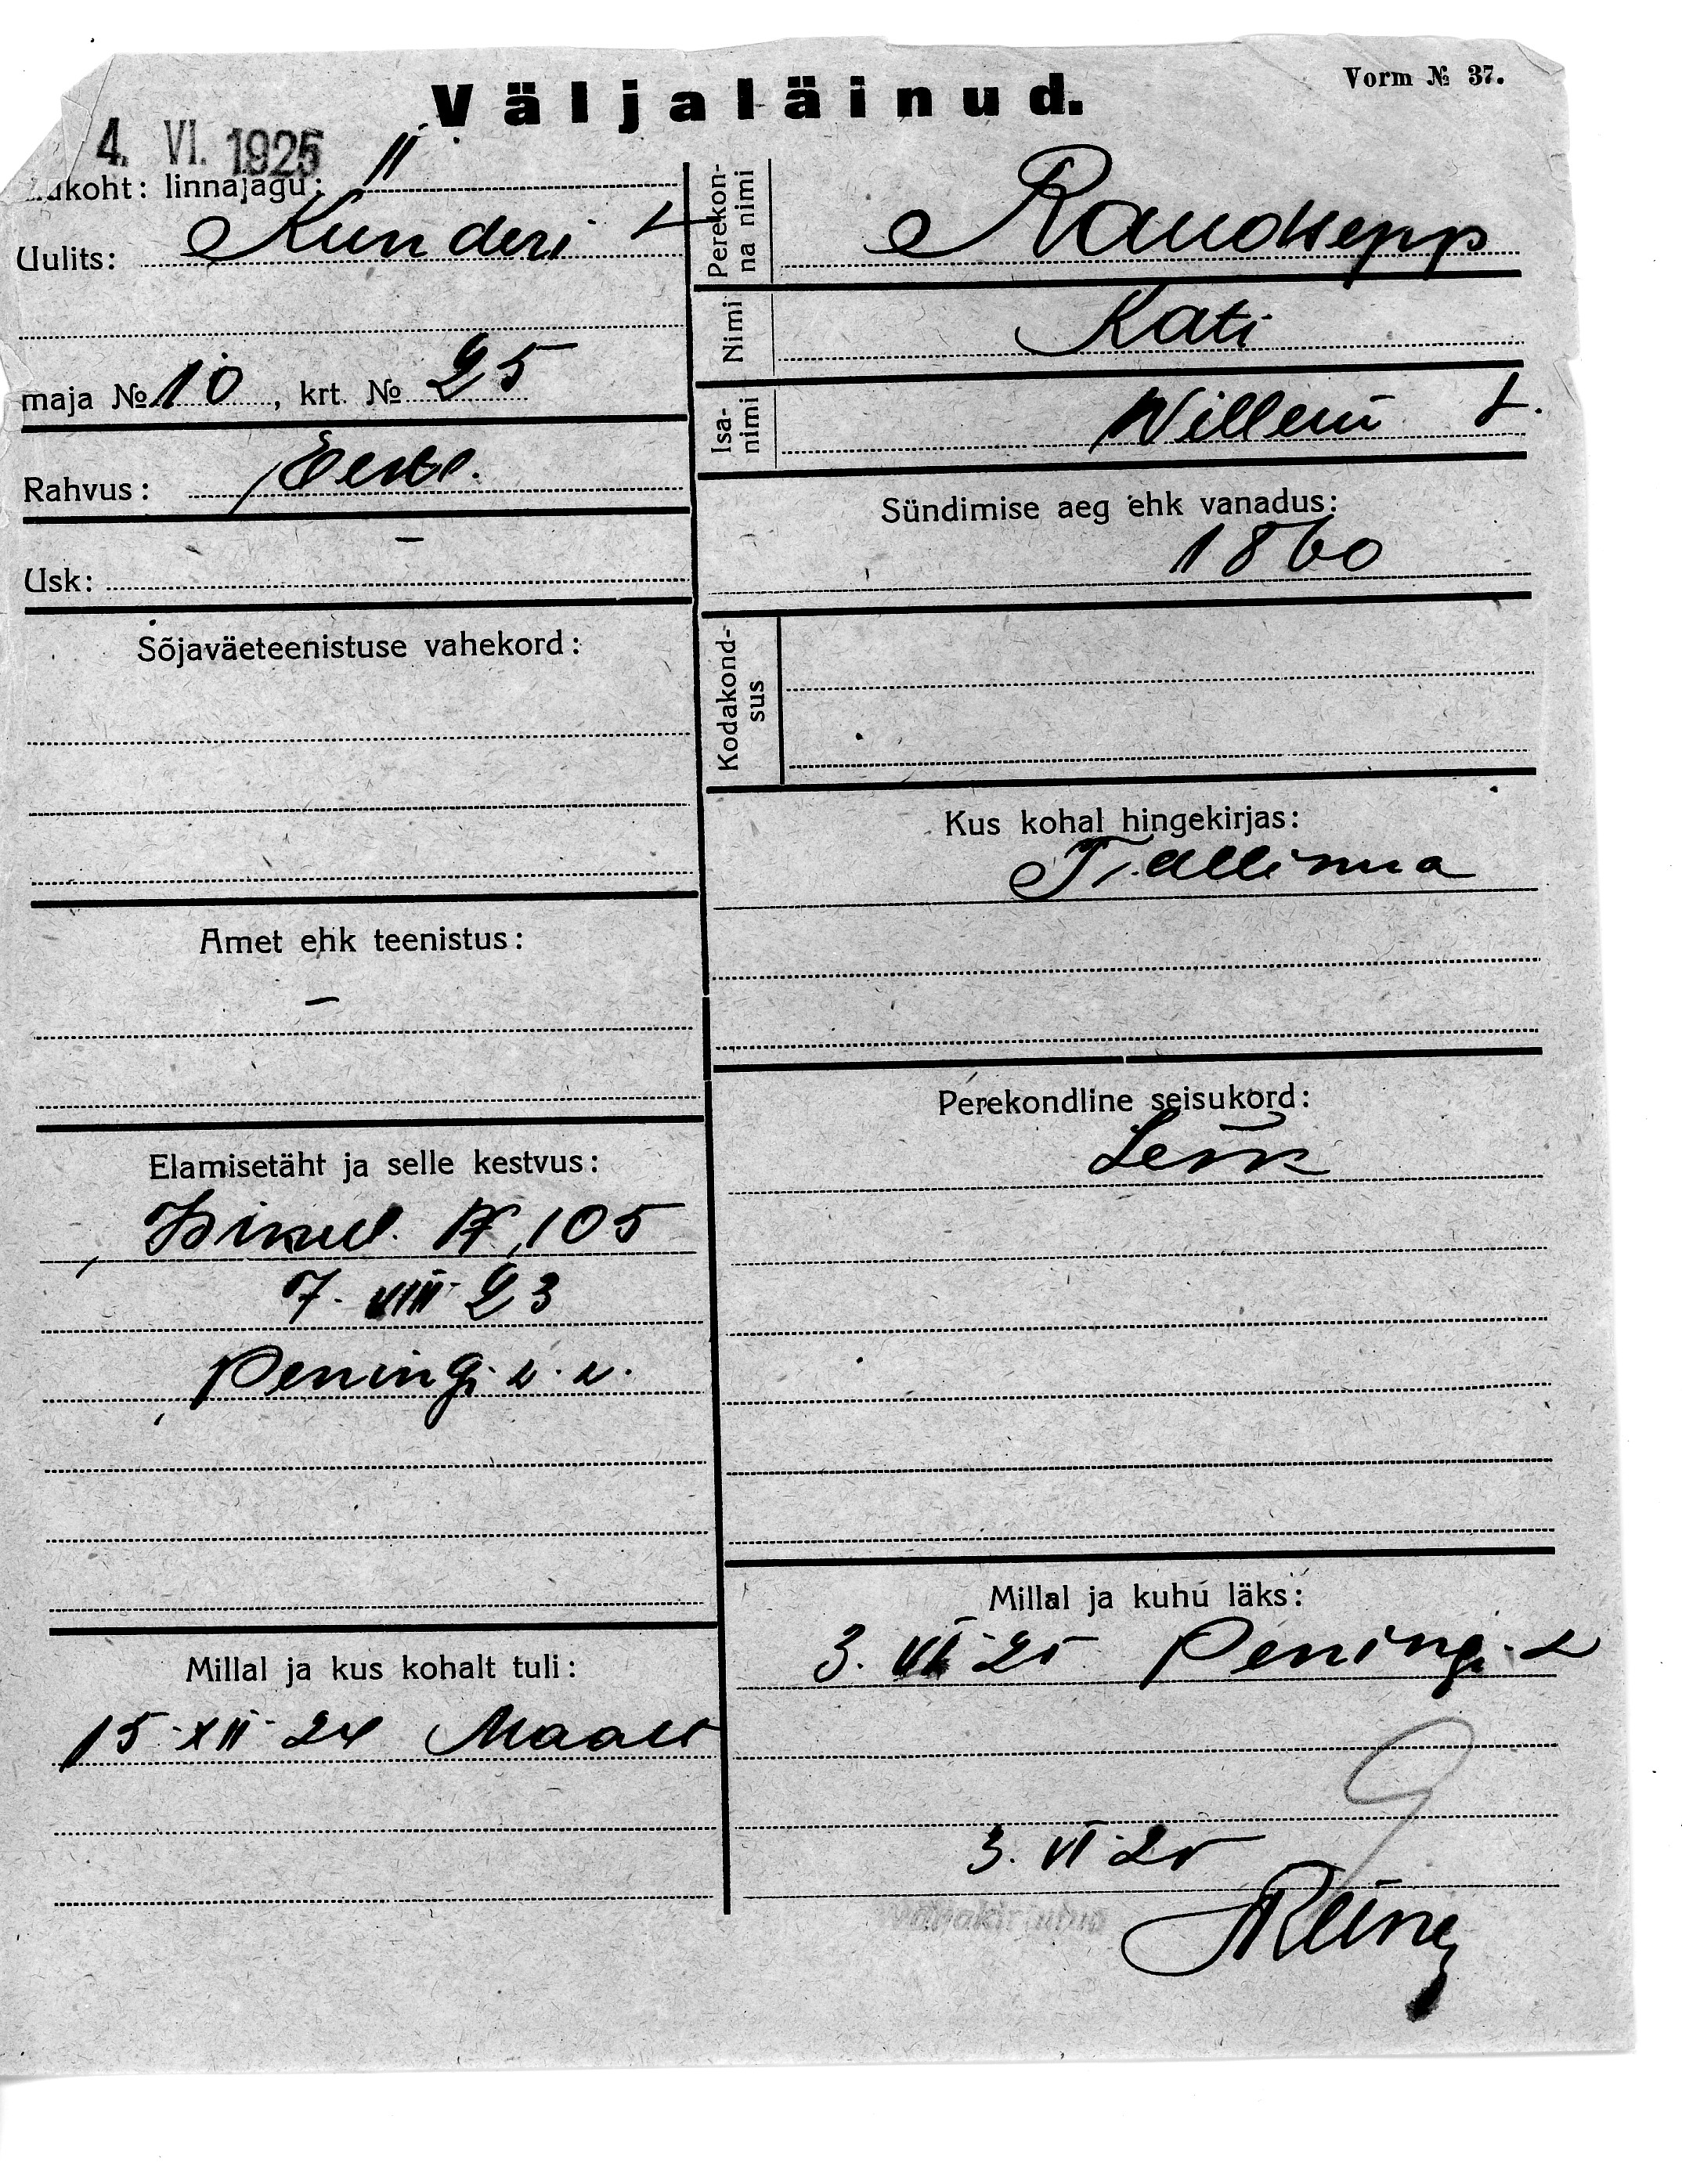 Väljaläinud.
Vorm № 37.
4. VI. 1925
ukoht: linnajagu: II
Uulits: Kunderi
maja № 10, krt. № 25
Rahvus: Eestl.
Usk: —
Sõjaväeteenistuse vahekord:
Amet ehk teenistus:
—
Elamisetäht ja selle kestvus:
105
7. VIII 23
Peningi v. v.
Millal ja kus kohalt tuli:
15 XII 24 Maalt
Perekonna nimi Raudsepp
Nimi Kati
Isanimi Willem t.
Sündimise aeg ehk vanadus:
1860
Kodakondsus
Kus kohal hingekirjas:
Tallinna
Perekondline seisukord:
Lesk
Millal ja kuhu läks:
3. VI 25 Peningi
3. VI 25